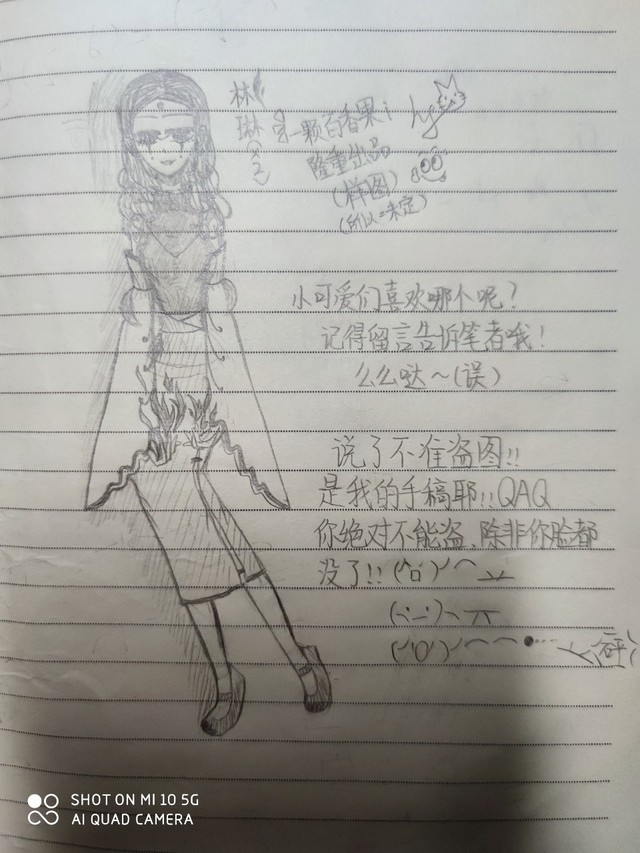 林
琳
一颗百香果i
隆重出品
(样图)
(所以=未定)
小可爱们喜欢哪个呢?
记得留言告诉笔者哦!
么么哒~(误)
说了不准盗图!!
是我的手稿耶!!QAQ
你绝对不能盗,除非你脸都
没了!!
SHOT ON MI 10 5G
AI QUAD CAMERA